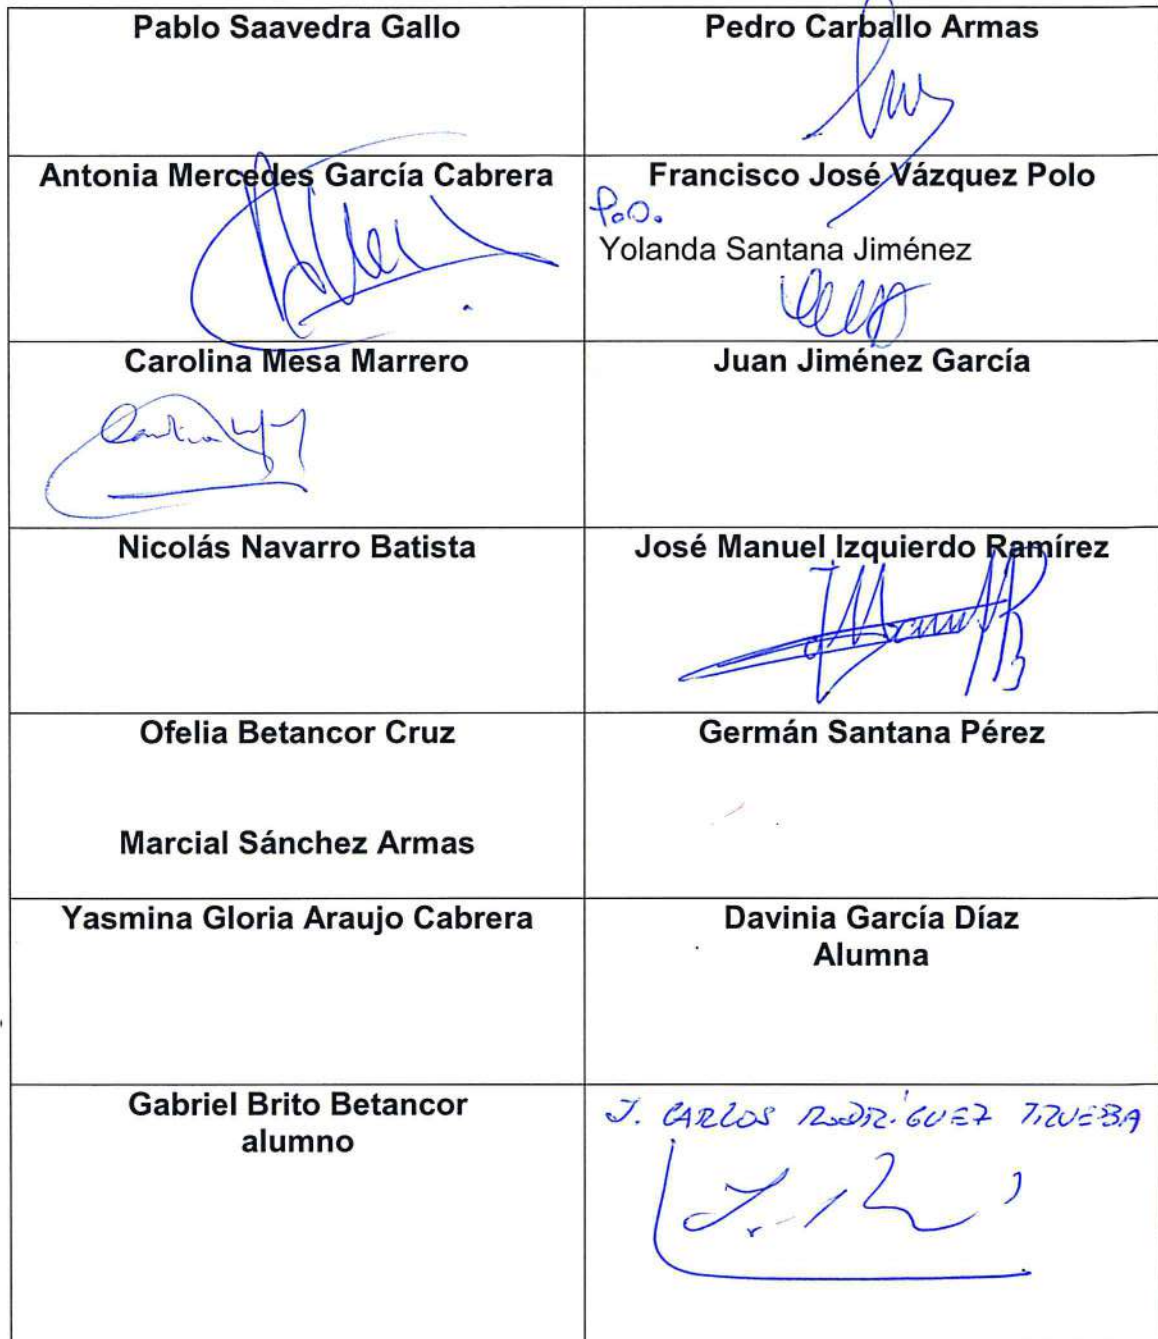 Pablo Saavedra Gallo
Pedro Carballo Armas
Antonia Mercedes García Cabrera
Francisco José Vázquez Polo
P.O.
Yolanda Santana Jiménez
Carolina Mesa Marrero
Juan Jiménez García
Nicolás Navarro Batista
José Manuel Izquierdo Ramírez
Ofelia Betancor Cruz
Marcial Sánchez Armas
Germán Santana Pérez
Yasmina Gloria Araujo Cabrera
Davinia García Díaz
Alumna
Gabriel Brito Betancor
alumno
J. CARLOS RODRÍGUEZ TRUEBA